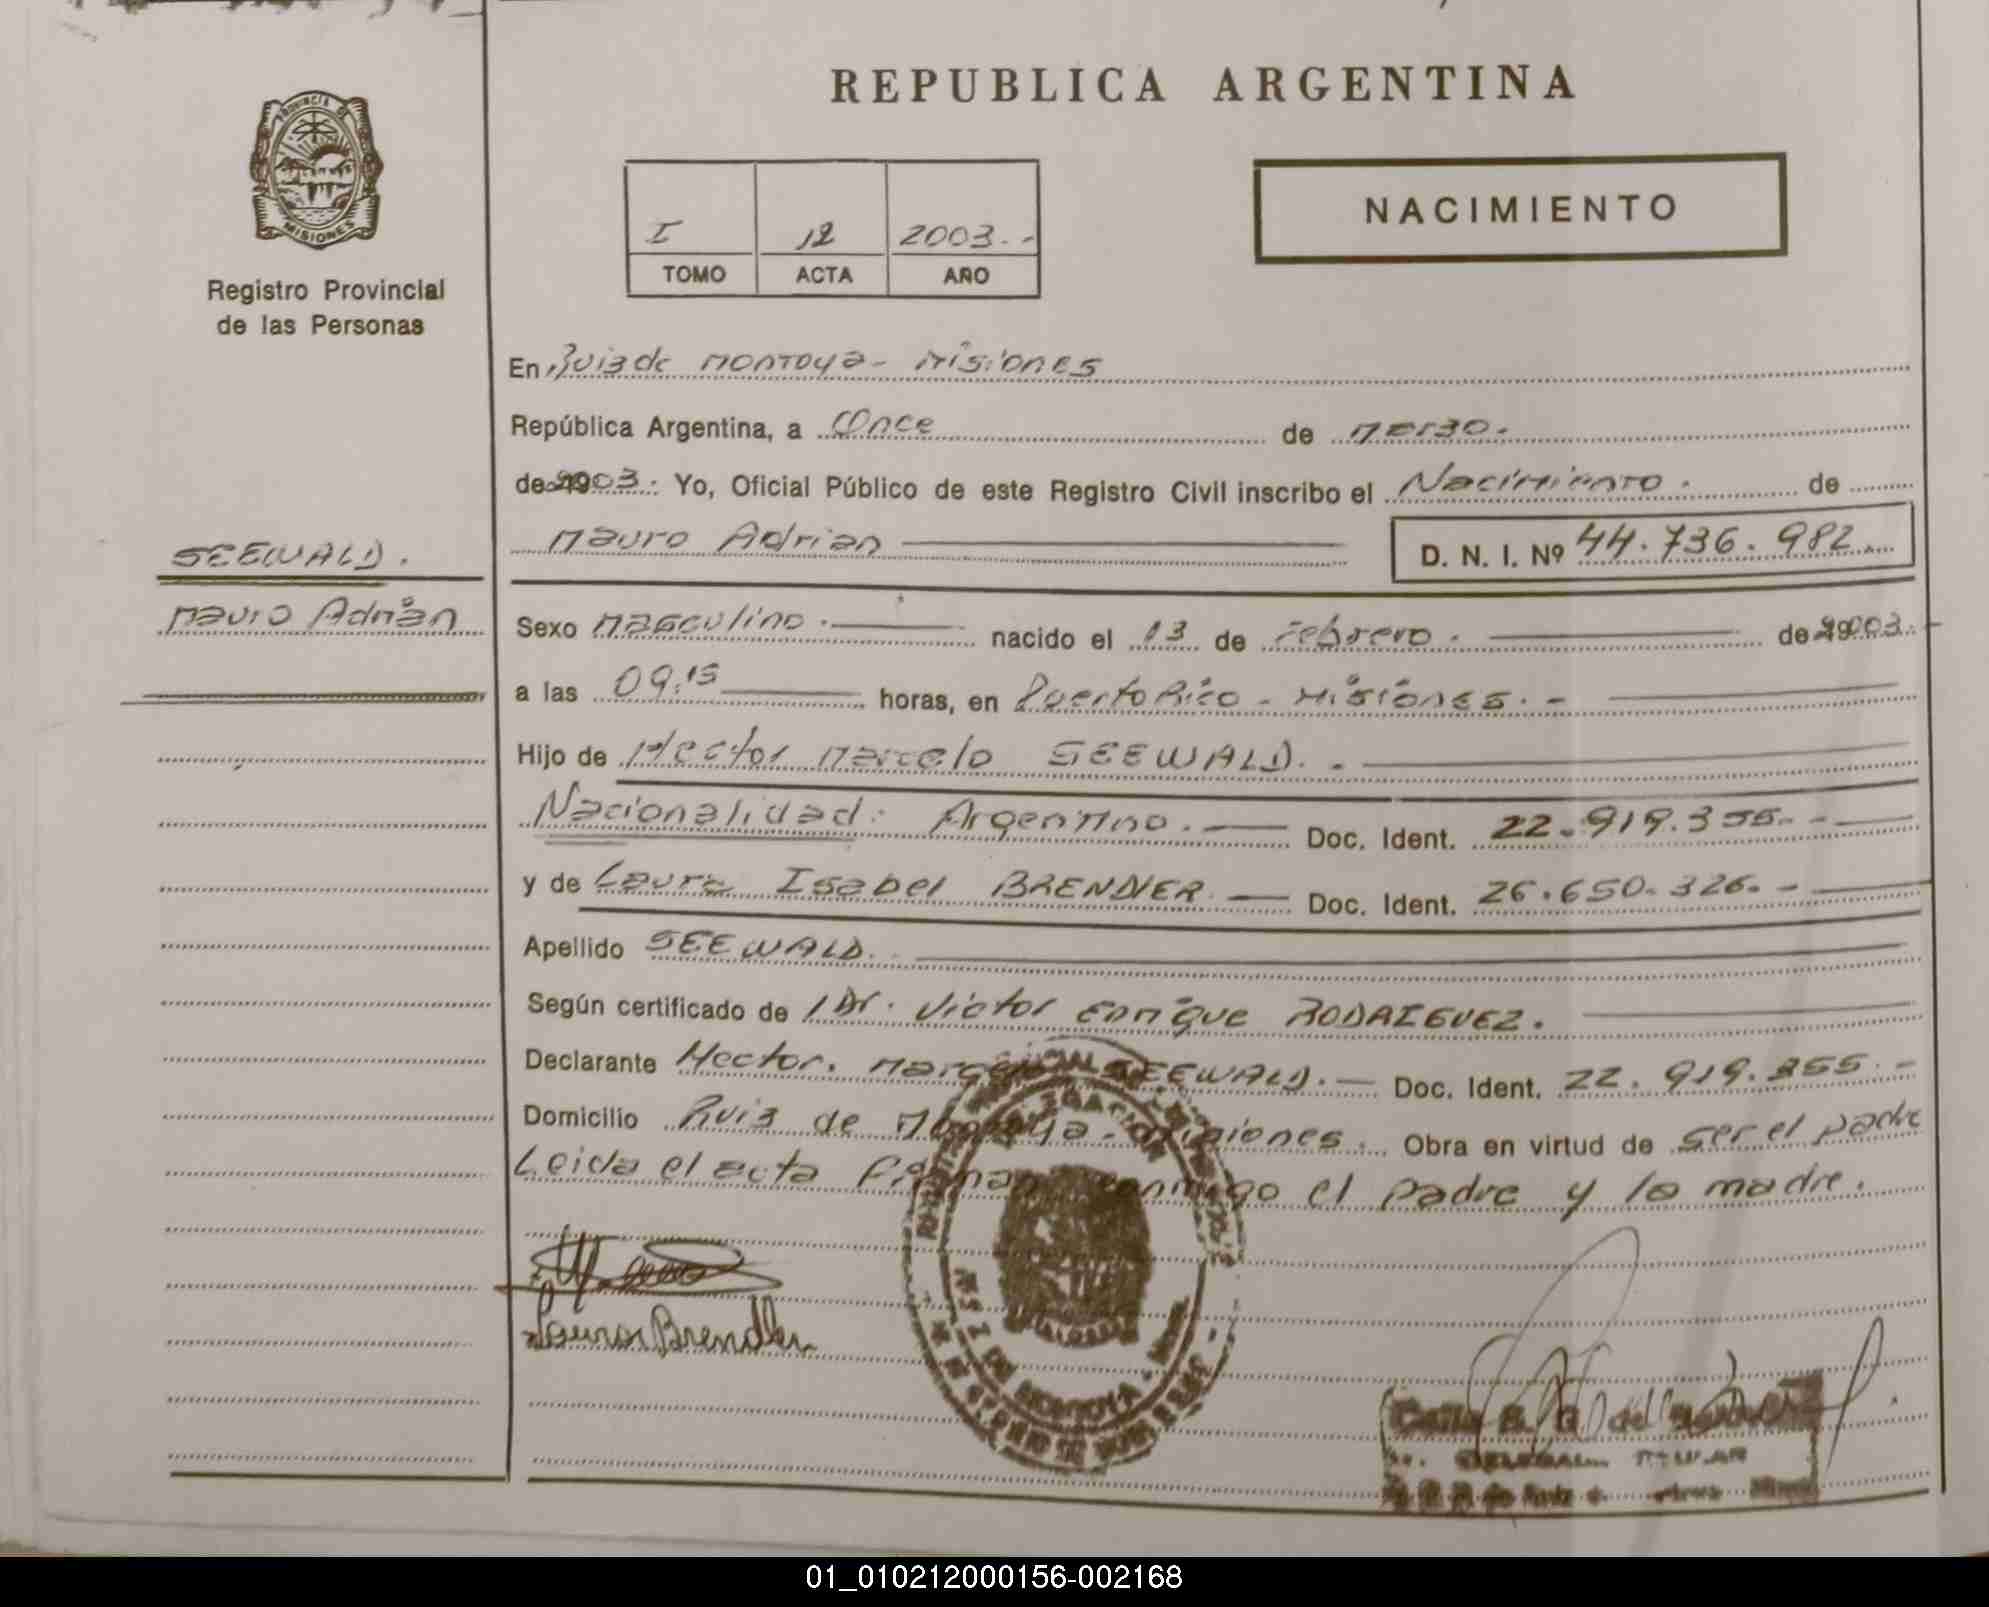 REPUBLICA ARGENTINA
PROVINCIA DE
MISIONES
Registro Provincial
de las Personas
I 12 2003.-
TOMO ACTA AÑO
NACIMIENTO
En Ruiz de Montoya - Misiones
República Argentina, a Once de Marzo.
de 2003. Yo, Oficial Público de este Registro Civil inscribo el Nacimiento. de
Mauro Adrian D. N. I. Nº 44.736.982.
SEEWALD.
Mauro Adrián
Sexo Masculino. nacido el 13 de Febrero. de 2003.-
a las 09:15 horas, en Puerto Rico - Misiones.-
Hijo de Hector Marcelo SEEWALD.
Nacionalidad: Argentino. Doc. Ident. 22.919.355.-
y de Laura Isabel BRENDLER Doc. Ident. 26.650.326.-
Apellido SEEWALD.
Según certificado de Dr. Victor Enrique RODRIGUEZ.
Declarante Hector. Marcelo SEEWALD. Doc. Ident. 22.919.355.-
Domicilio Ruiz de Montoya - Misiones. Obra en virtud de ser el padre
Leida el acta Firman conmigo el padre y la madre.
Laura Brendler
01_010212000156-002168